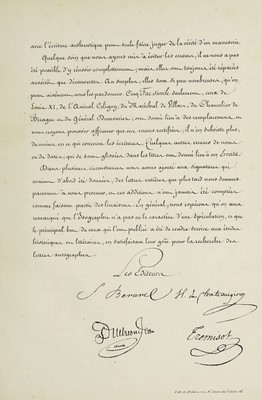 avec l'écriture authentique peut seule faire juger de la vérité d'un manuscrit.
Quelque soin que nous ayons mis à éviter les erreurs, il ne nous a pas
été possible d'y réussir complettement; mais elles ont toujours été réparées
aussitôt que découvertes. Au surplus, elles sont si peu nombreuses, qu'on
peut aisément nous les pardonner. Cinq Fac-simile seulement, ceux de
Louis XI, de l'Amiral Coligny, du Maréchal de Villars, du Chancelier de
Birague ou du Général Beaurevoir, ont donné lieu à des remplacements, et
nous croyons pouvoir affirmer que ces erreurs rectifiées, il n'en subsiste plus,
du moins, en ce qui concerne les écritures. Quelques autres erreurs de noms
ou de dates, qui se sont glissées dans les titres ont donné lieu à un Errata.
Dans plusieurs circonstances nous avons ajouté aux signatures qui
avaient d'abord été données, des lettres entières que plus tard nous sommes
parvenus à nous procurer, et ces additions n'ont jamais été comptées
comme faisant partie des livraisons. En général, nous espérons qu'on aura
remarqué que l'Isographie n'a pas eu le caractère d'une spéculation, et que
le principal but de ceux qui l'ont publiée a été de rendre service aux études
historiques et littéraires, en satisfaisant leur goût pour la recherche des
lettres autographes.
Les Editeurs
S. Berard H. de Chateaugiron
Tremisot